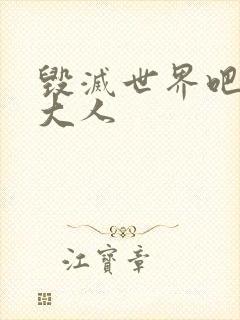 毀滅世界吧
大人
江寶章